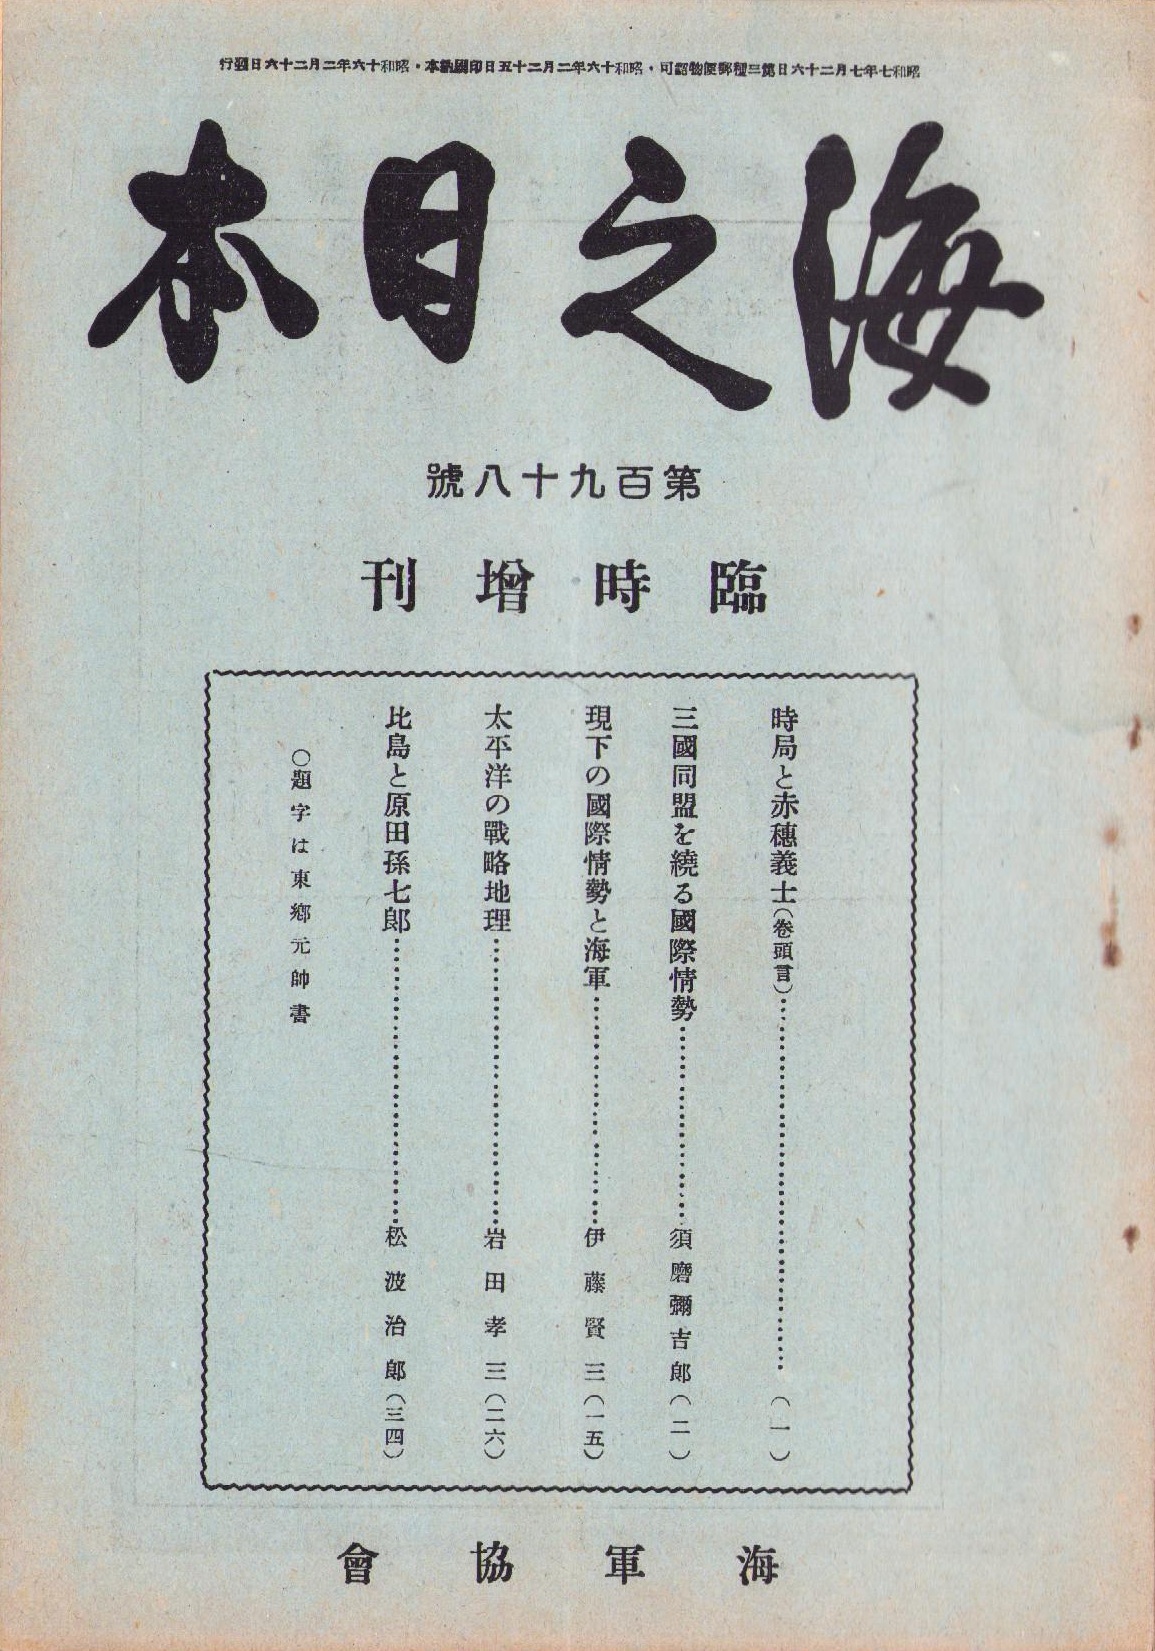 昭和七年七月二十六日第三種郵便物認可・昭和十六年二月二十五日印刷納本・昭和十六年二月二十六日發行
海之日本
第百九十八號
臨時增刊
時局と赤穗義士(卷頭言)…(一)
三國同盟を繞る國際情勢…須磨彌吉郎(二)
現下の國際情勢と海軍…伊藤賢三(一五)
太平洋の戰略地理…岩田孝三(二六)
比島と原田孫七郎…松波治郎(三四)
○題字は東鄉元帥書
海軍協會